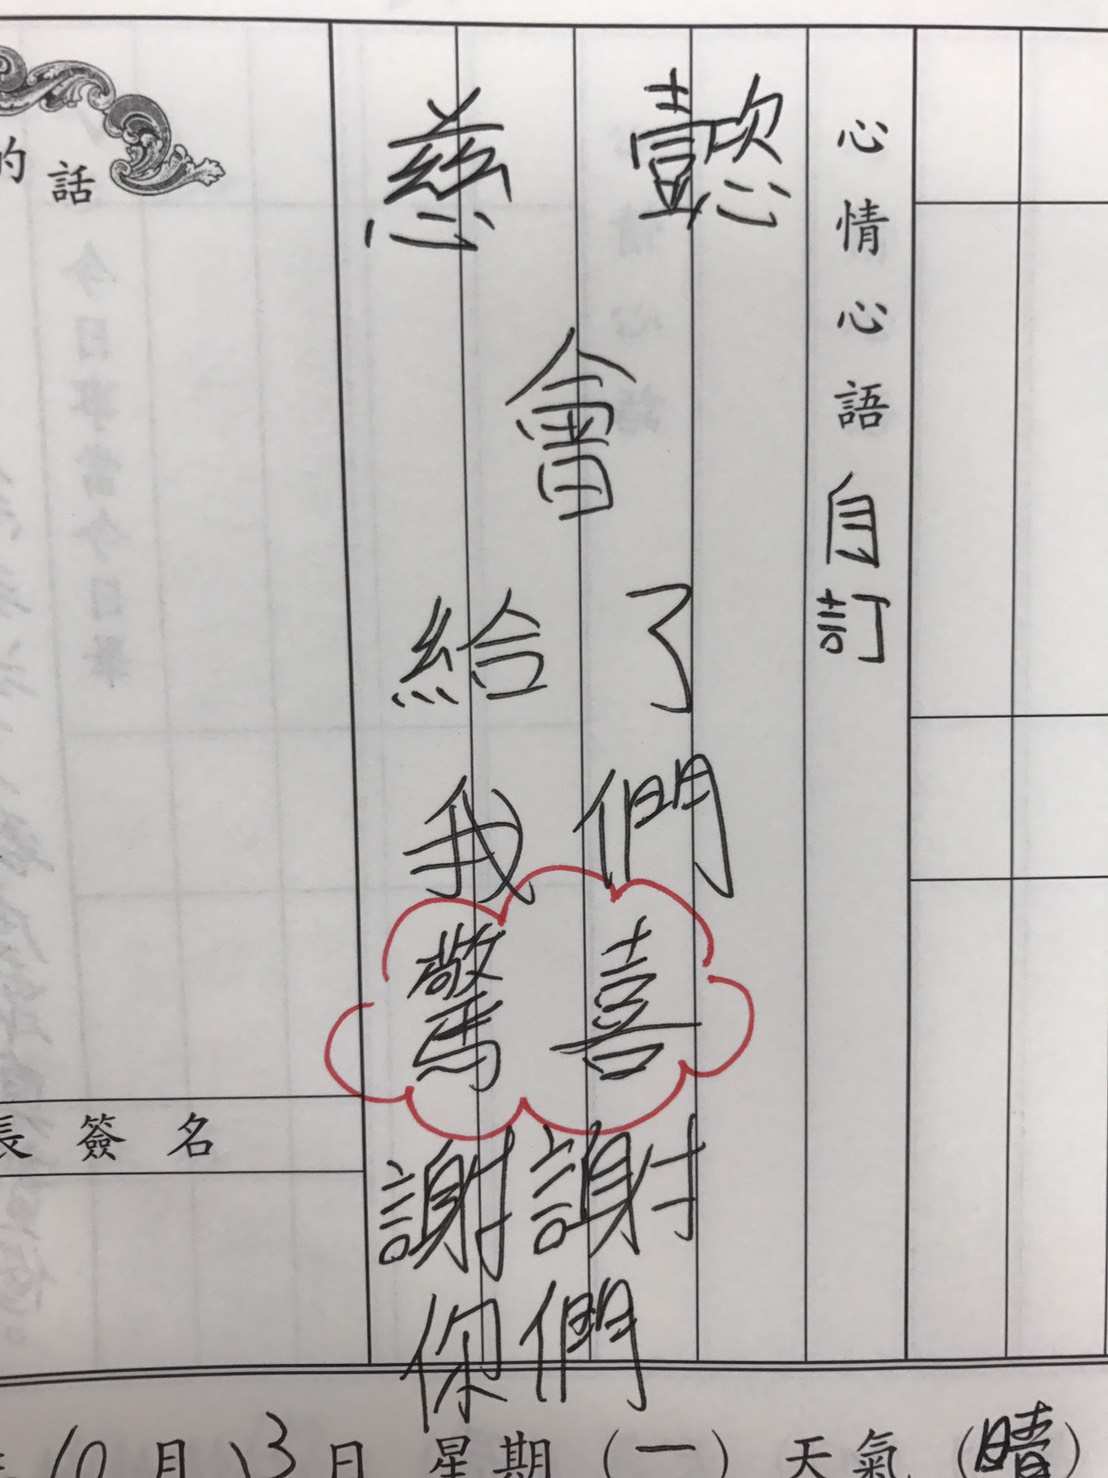 心情心語自訂
慈懿
會
給了
我們
驚喜
謝謝
你們
的話
長簽名
10月13日 星期(一) 天氣(晴)